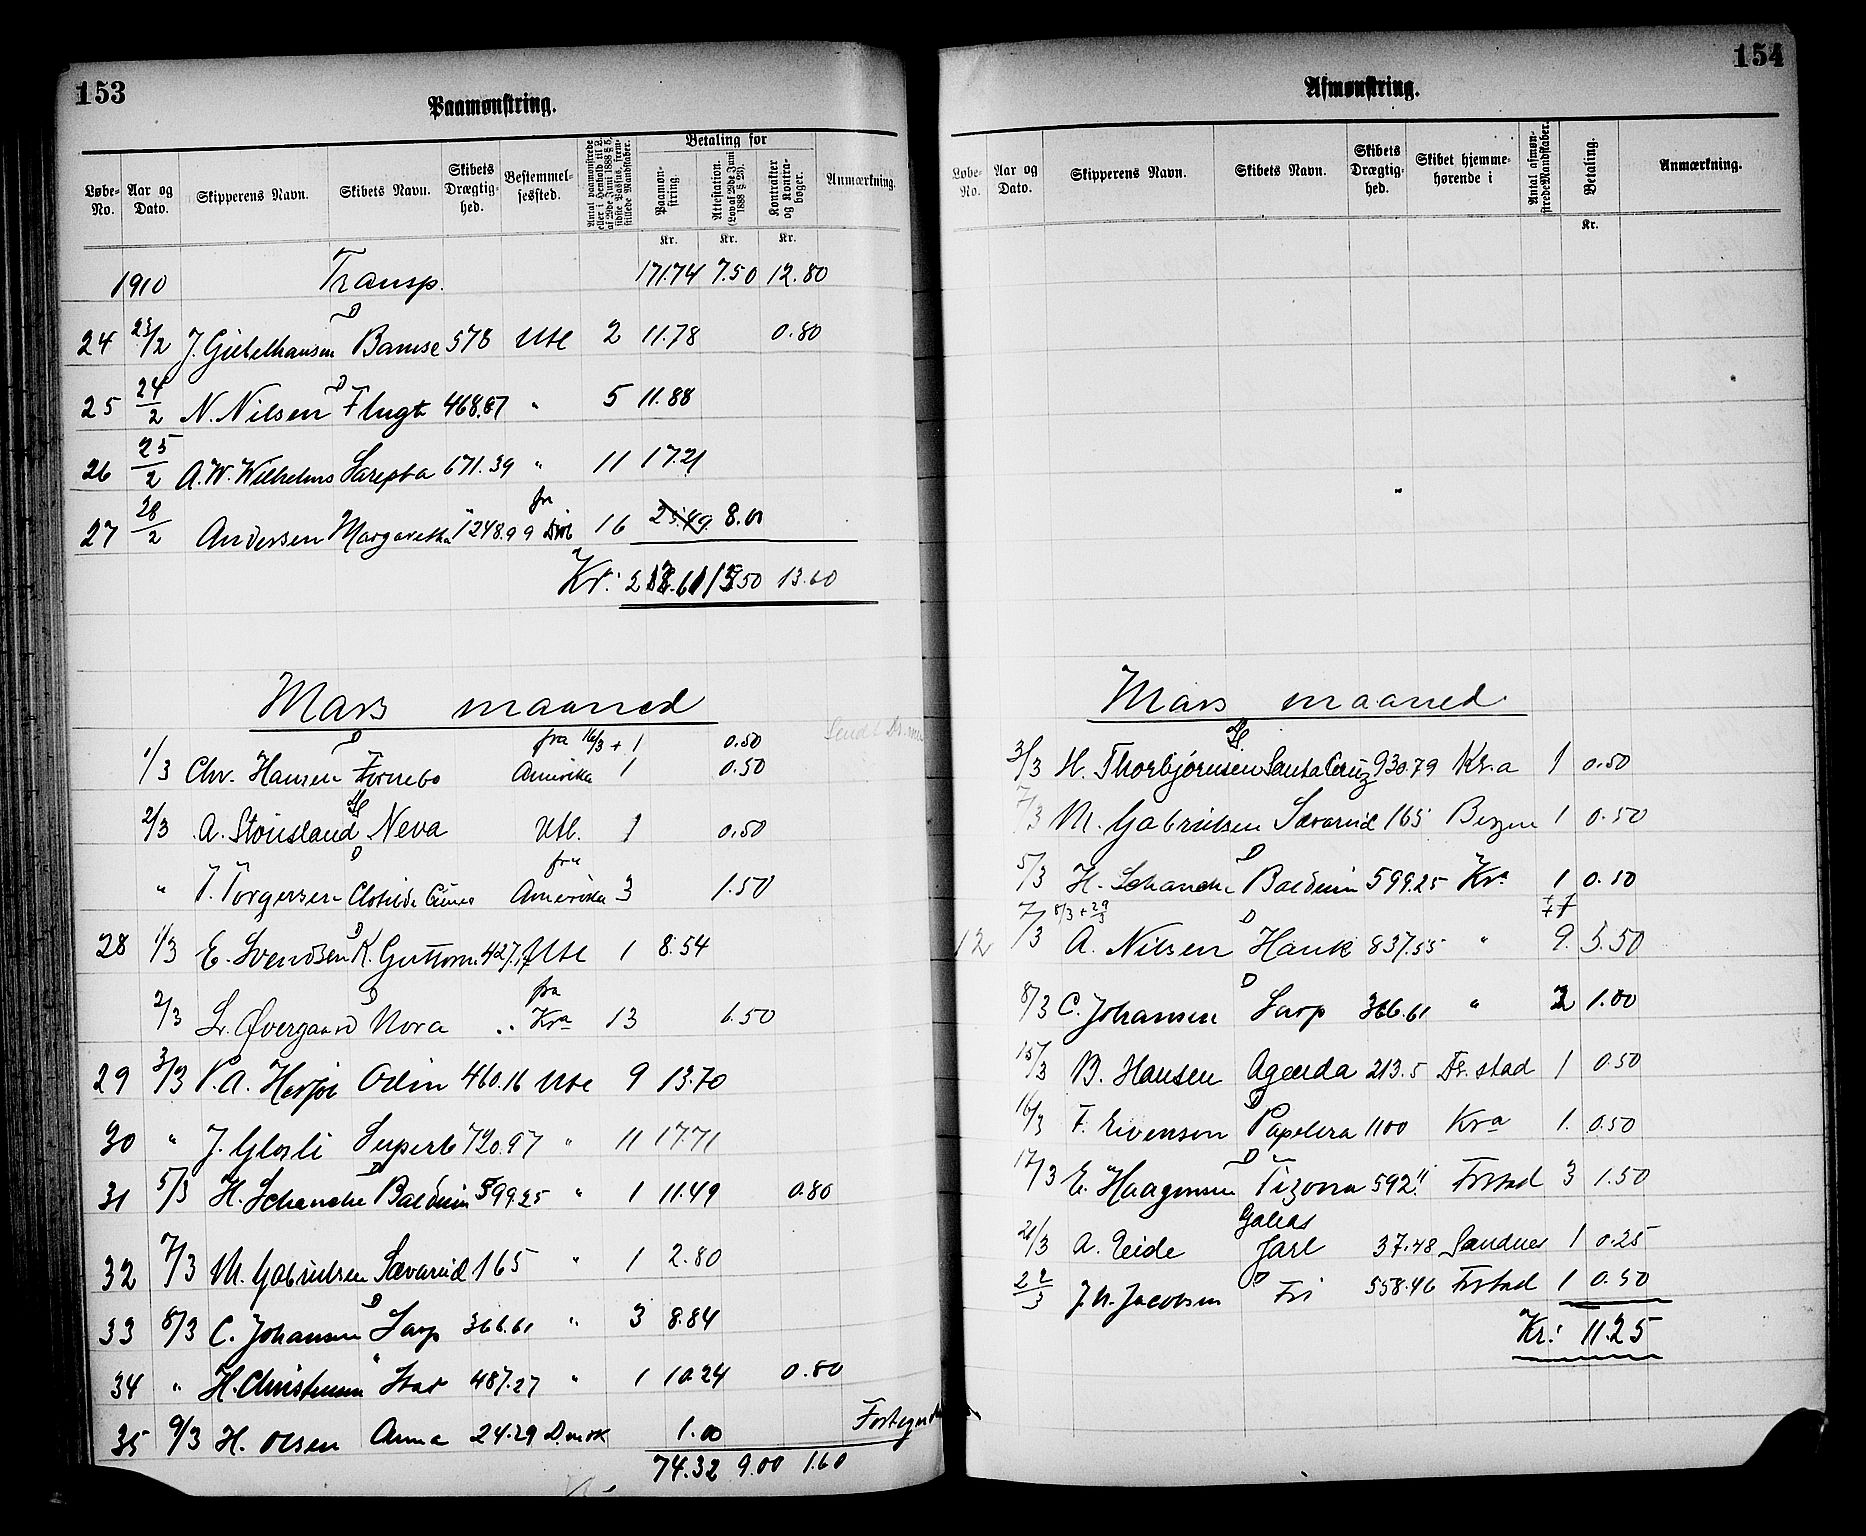 153
Paamønstring.
Løbe-No.
Aar og Dato.
Skipperens Navn.
Skibets Navn.
Skibets Drægtighed.
Bestemmelsessted.
Antal paamønstrede eller i Henhold til L. af 29de Juni 1888 § 5, sidste Passus, fremstillede Mandskaber.
Betaling for
Paamønstring.
Attestation. (Lov af 29de Juni 1888 § 29).
Kontrakter og Kontrabøger.
Anmærkning.
Kr. Kr. Kr.
1910 Transp. 171.74 7.50 12.80
24 23/2 J. Giebelhausen D Bamse 578 Utl 2 11.78 0.80
25 24/2 N. Nilsen D Flugt 468.67 " 5 11.88
26 25/2 A. W. Wilhelms Sarepta 671.39 " 11 17.21
27 28/2 Andersen Margaretha 1248.99 fra 16 25.49 8.00
Kr: 13.60
Mars maaned
1/3 Chr. Hansen D Fornebo fra Amerika 16/3 + 1 0.50
1 0.50
2/3 A. Stousland Neva Utl. 1 0.50
" T. Torgersen D Clotilde Cuneo fra Amerika 3 1.50
28 1/3 E. Svendsen D K. Guttorm 427. Utl 1 8.54
2/3 L. Øvergaard D Nora " fra Kra 13 6.50
29 3/3 P. A. Odin 460.16 Utl 9 13.70
30 " J. Glosli Superb 720.97 " 11 17.71
31 5/3 H. Schanche D Balduin 599.25 " 1 11.49 0.80
32 7/3 M. Gabrielsen Sævareid 165 " 1 2.80
33 8/3 C. Johansen D Sarp 366.61 " 3 8.84
34 " H. Christensen " Star 487.27 " 1 10.24 0.80
35 9/3 H. Olsen Anna 24.29 D.mark 1.00
74.32 9.00 1.60
154
Afmønstring.
Løbe-No.
Aar og Dato.
Skipperens Navn.
Skibets Navn.
Skibets Drægtighed.
Skibet hjemmehørende i
Antal afmønstrede Mandskaber.
Betaling.
Anmærkning.
Kr.
Mars maaned
3/3 H. Thorbjørnsen Santa Cruz 930.79 Kr.a 1 0.50
7/3 M. Gabrielsen Sævareid 165 Bergen 1 0.50
5/3 H. Schanche D Balduin 599.25 Kra 1 0.50
12 7/3 8/3 + 29/3 A. Nilsen D Hauk 837.55 " 9 5.50
8/3 C. Johansen D Sarp 366.61 " 2 1.00
15/3 B. Hansen Agenda 213.5 Fr.stad 1 0.50
16/3 F. Evensen D Papelera 1100 Kra 1. 0.50
17/3 E. Haagensen D Tizona 592. Frstad 3 1.50
21/3 A. Eide Galeas Jarl 37.48 Sandnes 1 0.25
22/3 J. N. Jacobsen D Fri 558.46 Frstad 1 0.50
Kr: 11.25